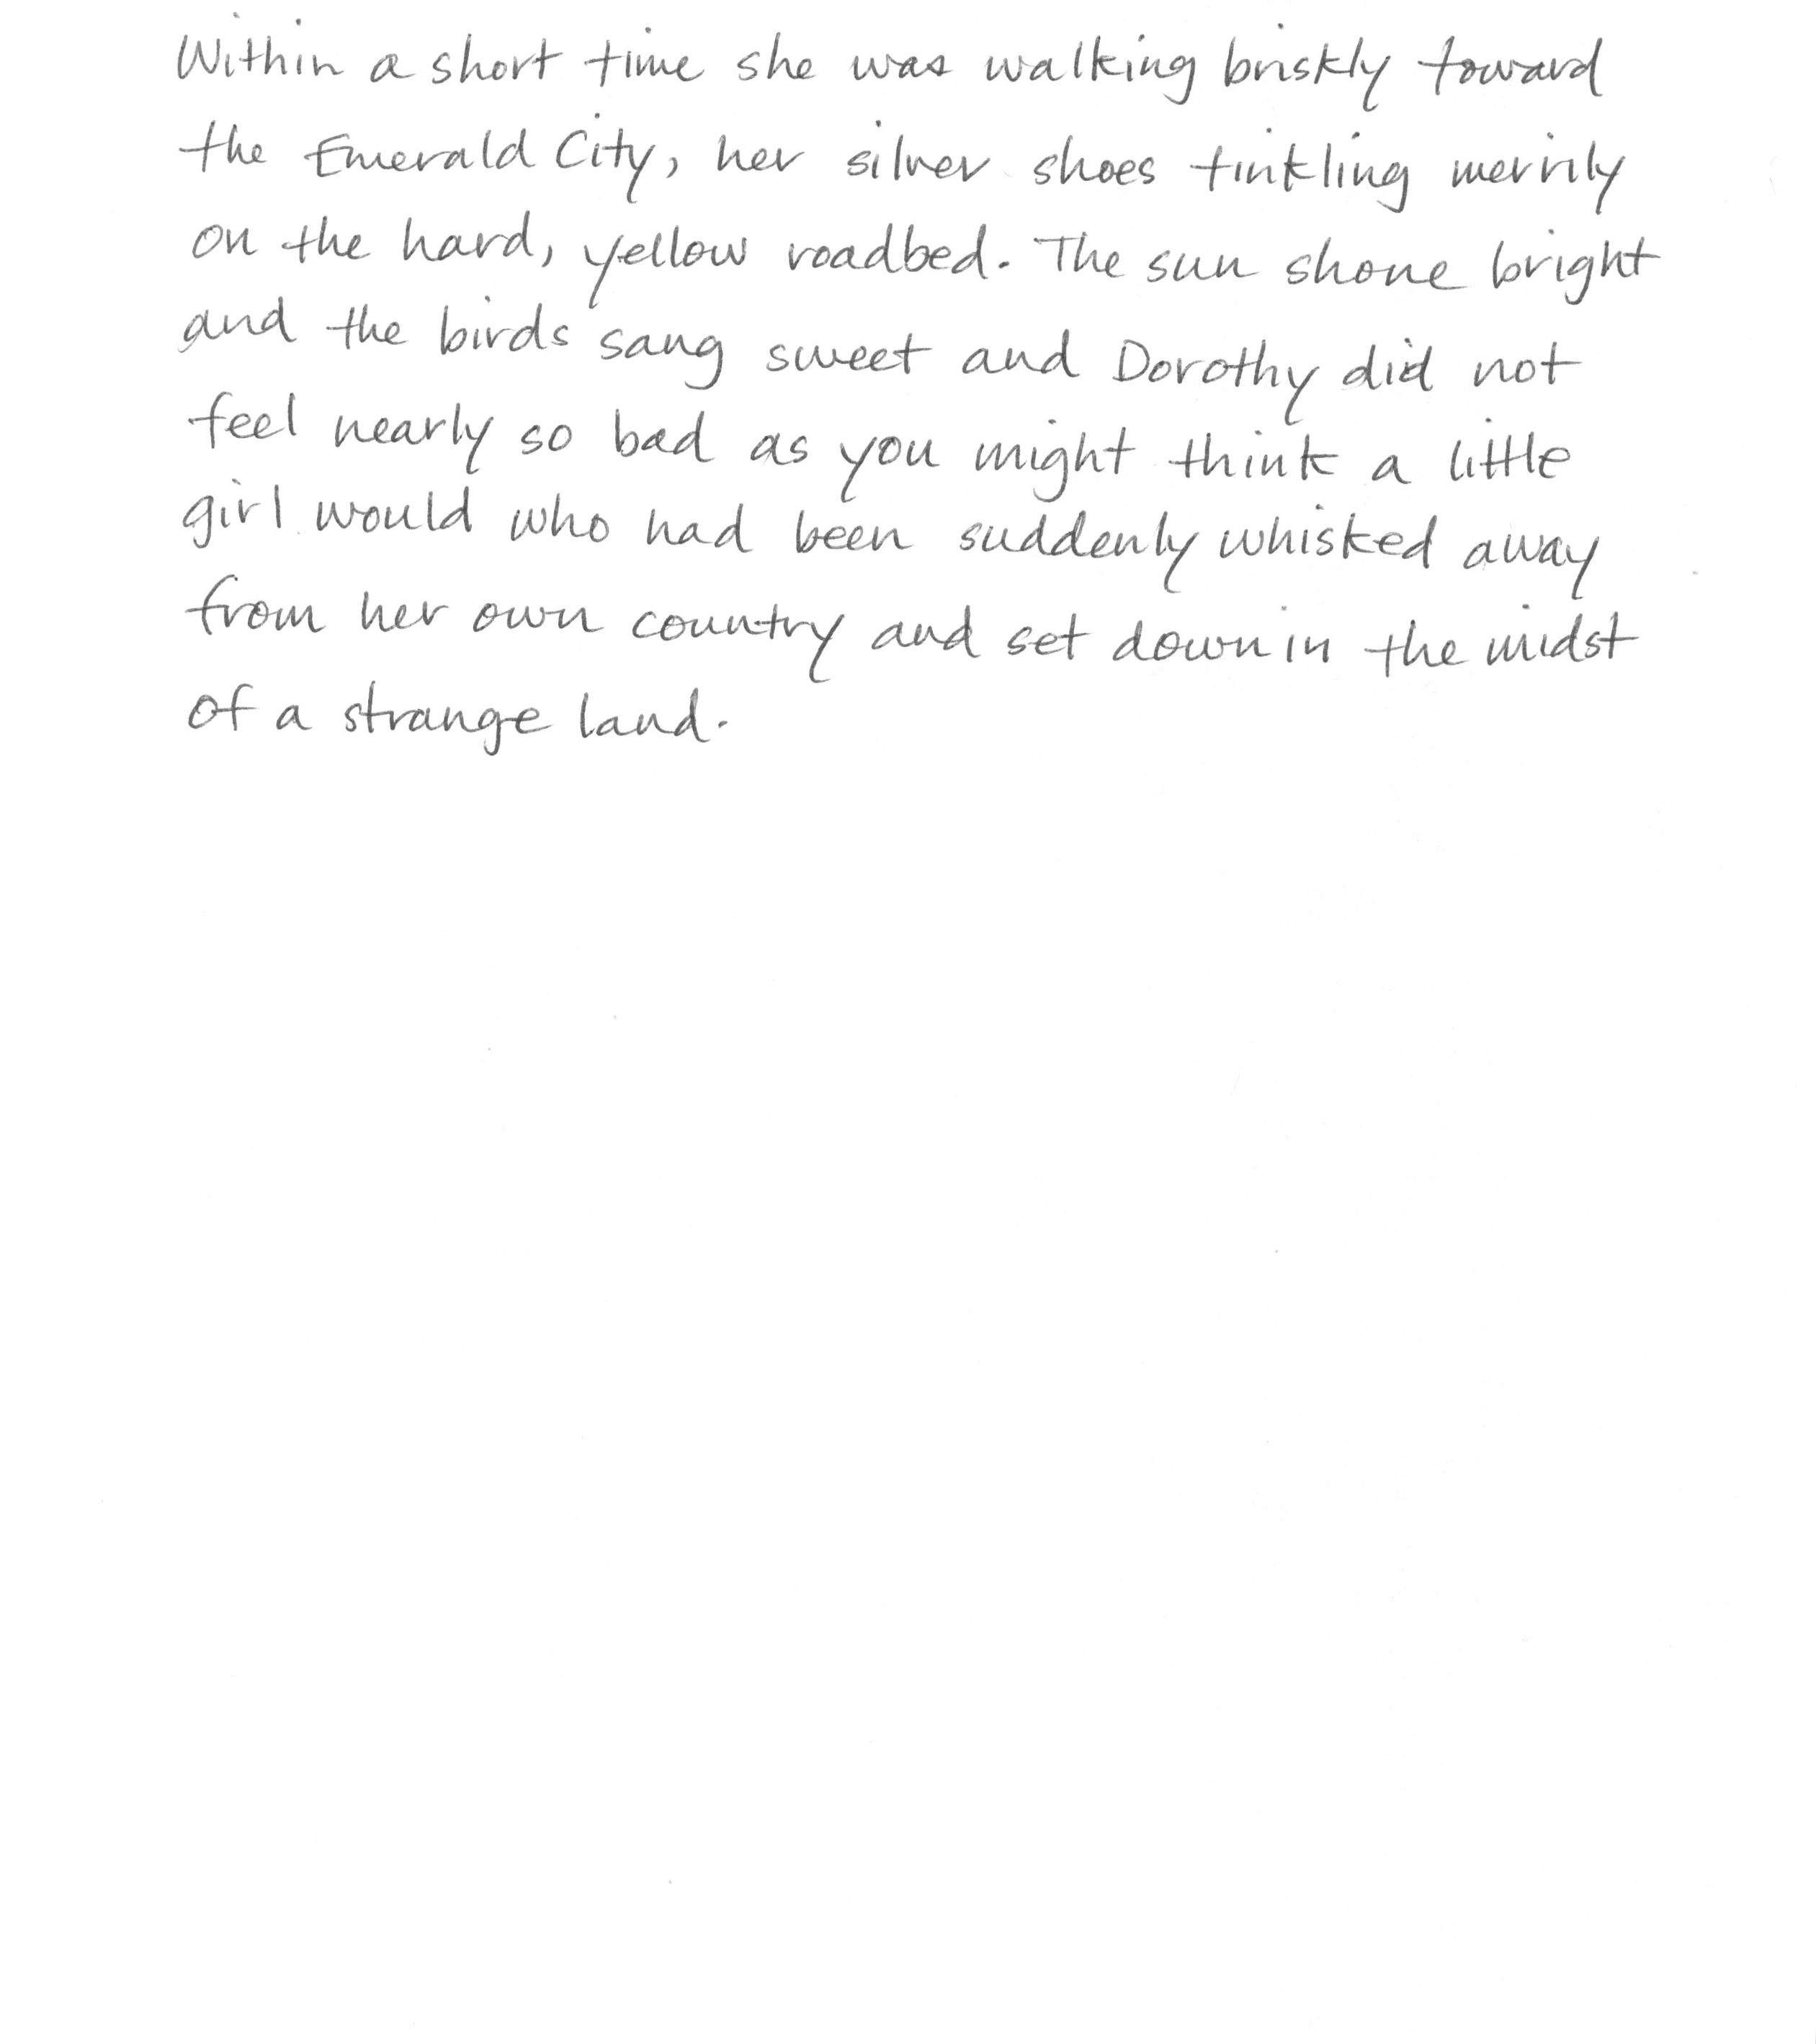 Within a short time she was walking briskly toward
the Emerald City, her silver shoes tinkling merrily
on the hard, yellow roadbed. The sun shone bright
and the birds sang sweet and Dorothy did not
feel nearly so bad as you might think a little
girl would who had been suddenly whisked away
from her own country and set down in the midst
of a strange land.